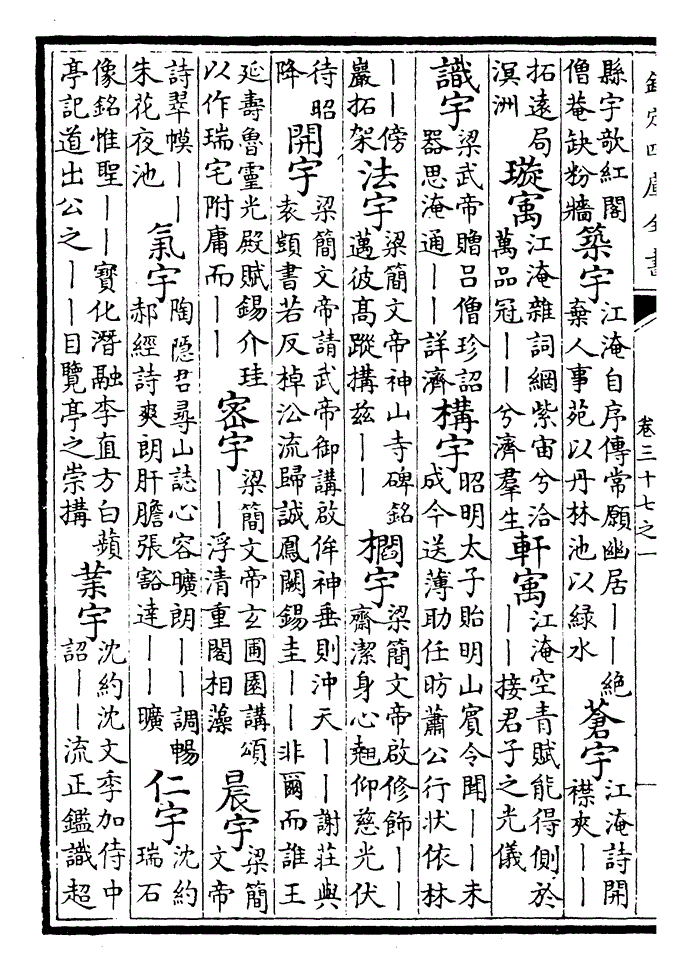 欽定四庫全書
卷三十七之一
縣宇欹紅閣僧菴缺粉牆 築宇 江淹自序傳常願幽居丨丨絶棄人事苑以丹林池以緑水 蒼宇 江淹詩開襟夾丨丨
拓遠局溟洲 璇寓 江淹雜詞網紫宙兮洽萬品冠丨丨兮濟羣生 軒寓 江淹空青賦能得側於丨丨接君子之光儀
識宇 梁武帝贈吕僧珍詔器思淹通丨丨詳濟 構宇 昭明太子貽明山賓令聞丨丨未成今送薄助任昉蕭公行狀依林
丨丨傍巖拓架 法宇 梁簡文帝神山寺碑銘邁彼高蹤搆兹丨丨 櫩宇 梁簡文帝啟修飾丨丨齋潔身心翹仰慈光伏
待昭降 開宇 梁簡文帝請武帝御講啟侔神垂則沖天丨丨謝莊與袁顗書若反棹㳂流歸誠鳳闕錫圭丨丨非爾而誰王
延壽魯靈光殿賦錫介珪以作瑞宅附庸而丨丨 密宇 梁簡文帝玄圃園講頌丨丨浮清重閣相藻 晨宇 梁簡文帝
詩翠幙丨丨朱花夜池 氣宇 陶隱君尋山誌心容曠朗丨丨調暢郝經詩爽朗肝膽張豁達丨丨曠 仁宇 沈約瑞石
像銘惟聖丨丨寶化潛融李直方白蘋亭記道出公之丨丨目覽亭之崇搆 業宇 沈約沈文季加侍中詔丨丨流正鑑識超